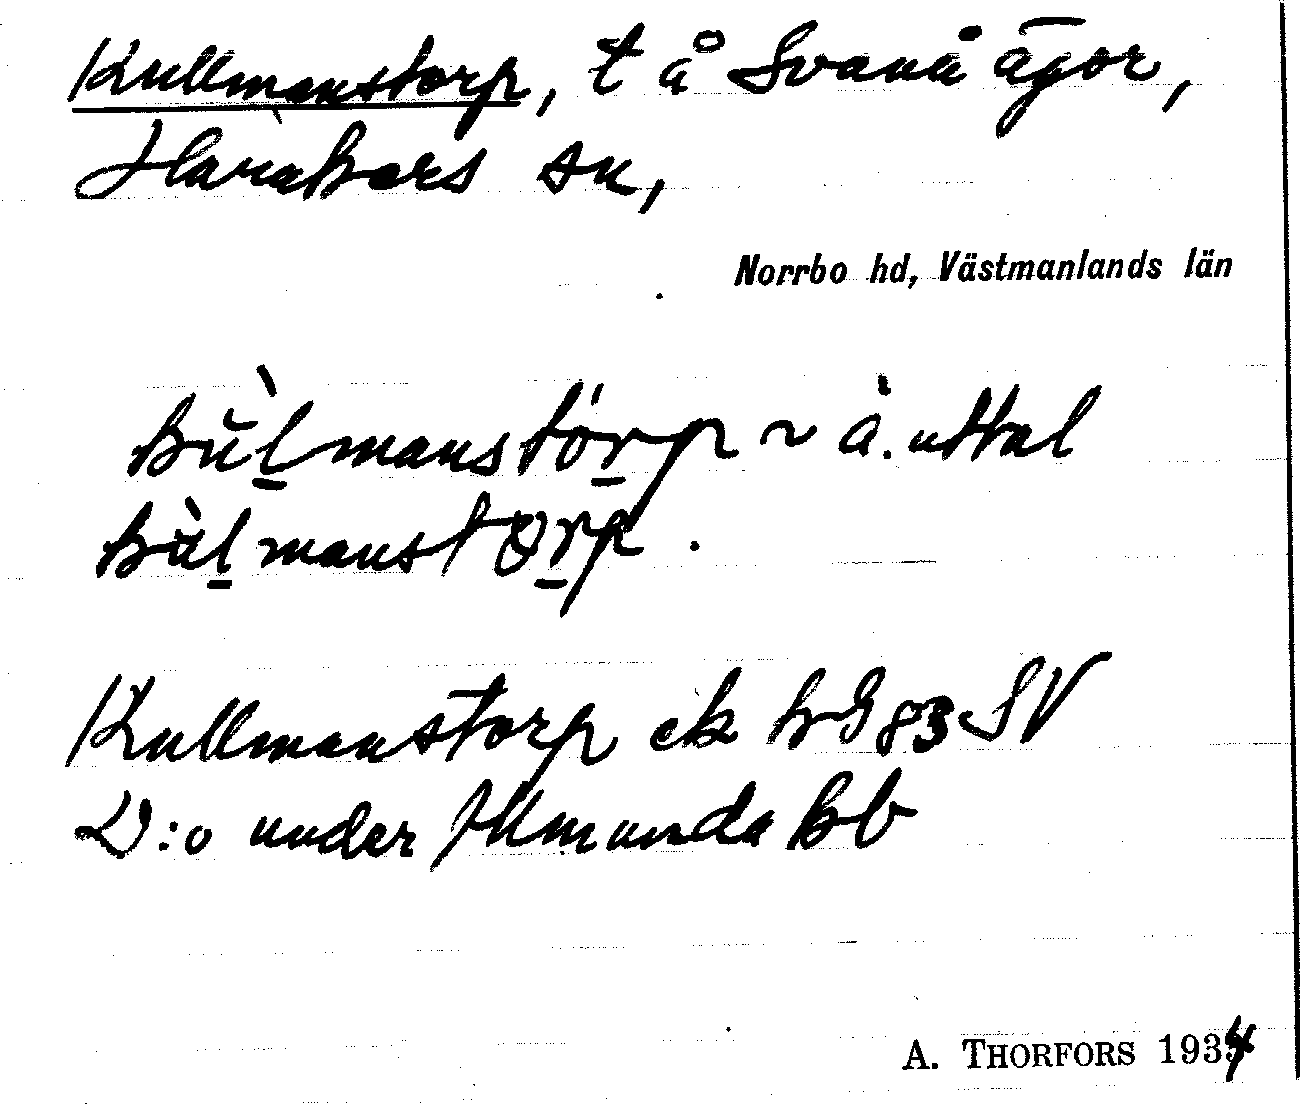 Kullmanstorp, t å Svanå ägor,
Harakers sn,
Norrbo hd, Västmanlands län
kùl̲manstór̲p ~ ä. uttal
kùl̲manstør̲p.
Kullmanstorp ek bl 83 SV
D:o under Ålmunda kb
A. THORFORS 1934